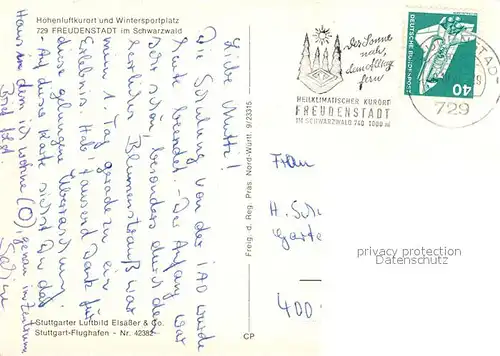 Höhenluftkurort und Wintersportplatz
729 FREUDENSTADT im Schwarzwald
Liebe Mutti!
Die Schulung von der IAO wurde
heute beendet. - Der Anfang war
sehr schön, besonders durch den
herrlichen Blumenstrauß war
mein 1. Tag geradezu ein
Erlebnis. Hab' tausend Dank für
diese gelungene Überraschung.
Auf dieser Karte siehst Du das
Haus in dem ich wohne (O), genau im Zentrum
Stuttgarter Luftbild Elsäßer & Co.
Stuttgart-Flughafen - Nr. 42382
Freig. d. Reg. Präs. Nord-Württ. 9/23315
CP
Der Sonne
nah,
dem Alltag
fern
HEILKLIMATISCHER KURORT
FREUDENSTADT
IM SCHWARZWALD 740-1000 m
DEUTSCHE BUNDESPOST
40
729
Frau
H. Sch
Garte
400
privacy protection